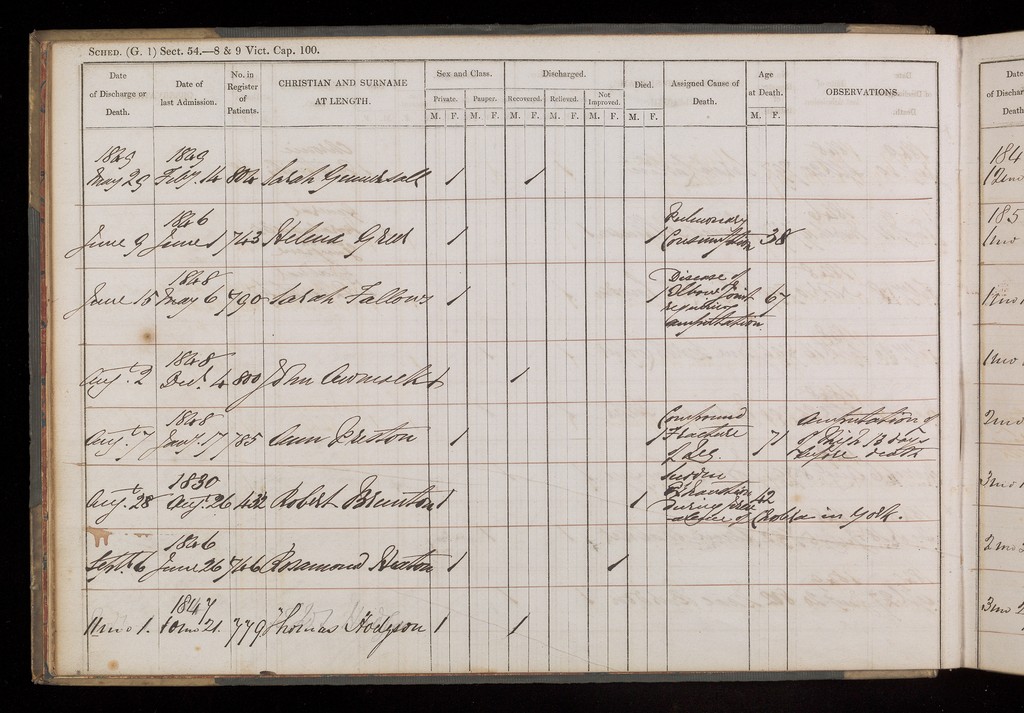 SCHED. (G. 1) Sect. 54.—8 & 9 Vict. Cap. 100.
Date of Discharge or Death. Date of last Admission. No. in Register of Patients. CHRISTIAN AND SURNAME AT LENGTH. Sex and Class. Discharged. Died. Assigned Cause of Death. Age at Death. OBSERVATIONS.
Private. Pauper. Recovered. Relieved. Not Improved.
M. F. M. F. M. F. M. F. M. F. M. F. M. F.
1849 1849
May 29 Feby. 14 804 Sarah 1 1
1846
June 9 June 1 743 Helena Greer 1 1 Pulmonary Consumption 38
1848
June 15 May 6 790 Sarah Fallows 1 1 Disease of Elbow Joint requiring amputation 67
1848
Aug. 2 Dec. 4 800 John 1 1
1848
Aug. 7 Jany. 17 785 Ann Preston 1 1 Compound Fracture of Leg. 71 amputation of of thigh 13 days before death
1830
Augt. 28 Augt. 26 432 Robert Brunton 1 1 Sudden Exhaustion during prevalence of Cholera in York. 42
1846
Septr. 6 June 26 746 Rosamond Heaton 1 1
1847
11mo 1. 10mo 21. 779 Thomas Hodgson 1 1
Date
of Dischar
Death
184
12mo
185
1mo
11mo
1mo
2mo
3mo
2mo
3mo 2